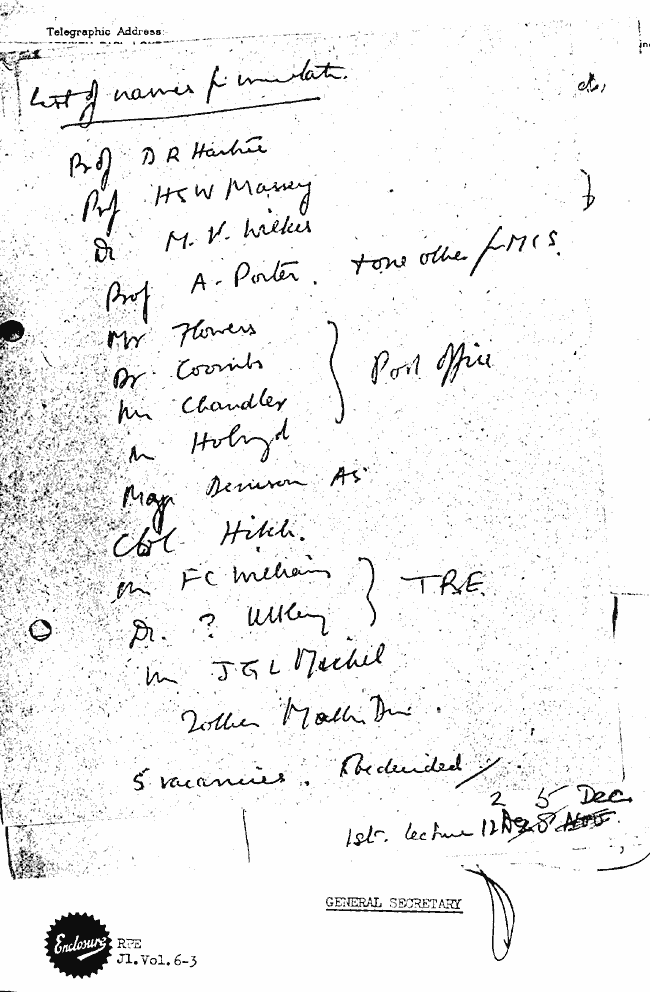 Telegraphic Address:
List of names for
etc,
Prof D R Hartree
Prof HSW Massey
Dr M. V. Wilkes
Prof A. Porter. + one other for MCS.
Mr Flowers
Dr Coombs
Mr Chandler
Post Office
Mr Holroyd
Major Denison AS
Col Hitch.
Mr FC Williams
Dr. ? Uttley
T.R.E.
Mr J G L Michel
2 other Maths Div.
5 vacancies. To be decided
2 5 Dec
1st. lecture 12
GENERAL SECRETARY
Enclosure
RPE
J1.Vol.6-3